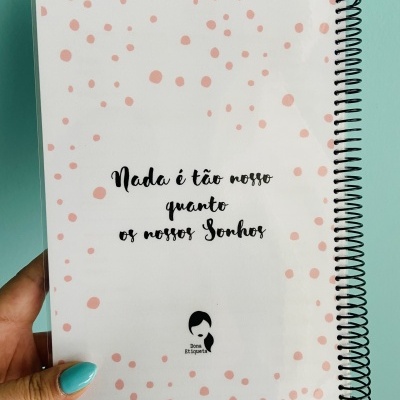 Nada é tão nosso
quanto
os nossos Sonhos
Dona
Etiqueta